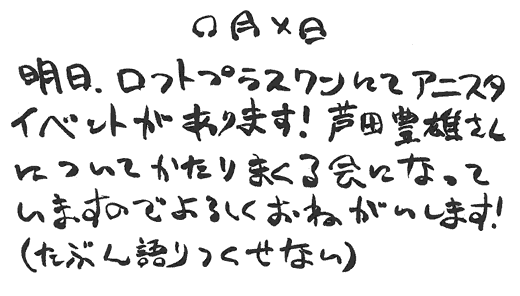 〇月×日
明日、ロフトプラスワンにてアニスタ
イベントがあります！芦田豊雄さん
についてかたりまくる会になって
いますのでよろしくおねがいします！
（たぶん語りつくせない）